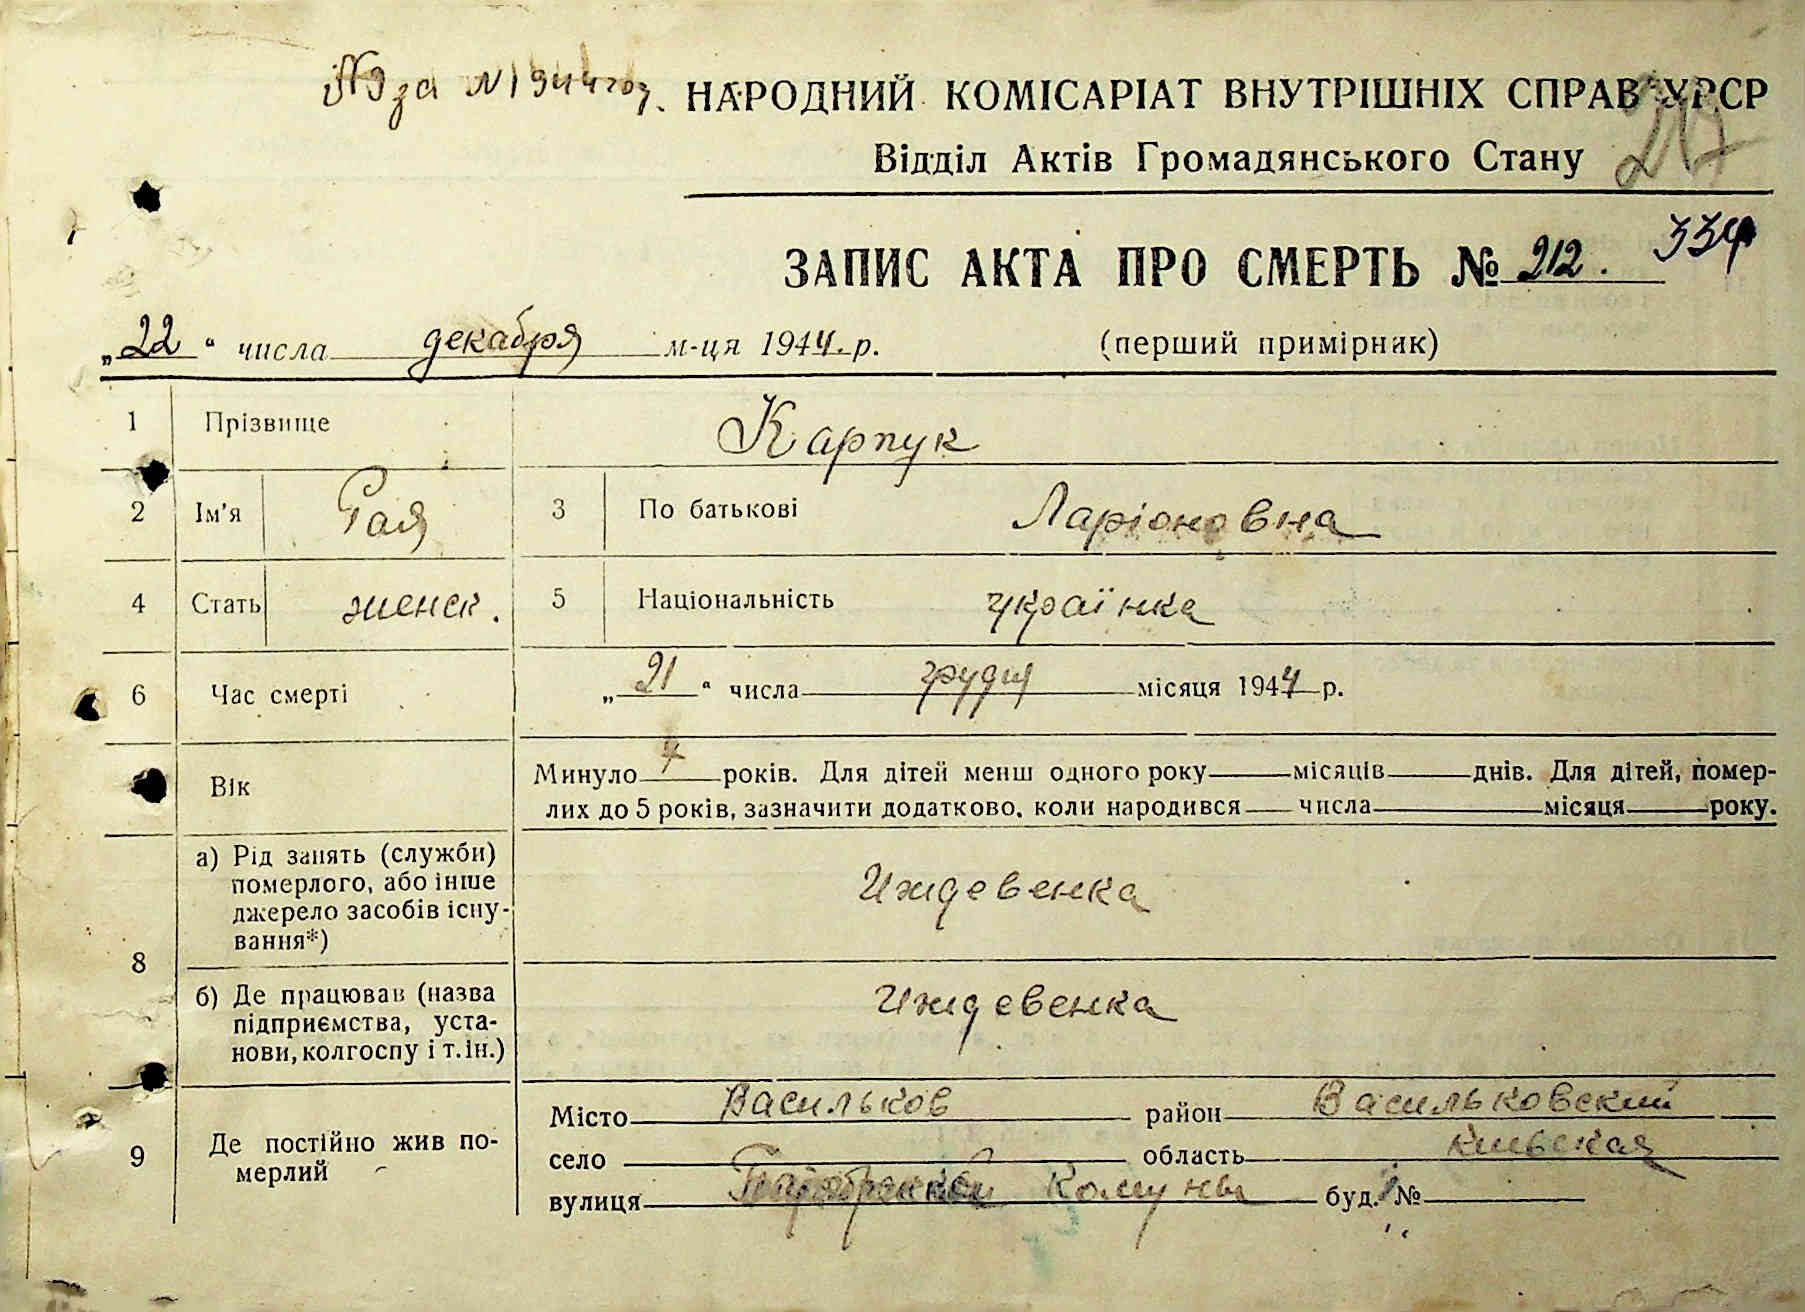 за 1944 год. НАРОДНИЙ КОМІСАРІАТ ВНУТРІШНІХ СПРАВ УРСР
217
Відділ Актів Громадянського Стану
ЗАПИС АКТА ПРО СМЕРТЬ № 212. 334
„22“ числа декабря м-ця 1944 р. (перший примірник)
1 Прізвище Карпук
2 Ім'я Рая 3 По батькові Ларіоновна
4 Стать женск. 5 Національність українка
6 Час смерті „21“ числа грудня місяця 1944 р.
Вік Минуло 4 років. Для дітей менш одного року місяців днів. Для дітей, помер-
лих до 5 років, зазначити додатково, коли народився числа місяця року.
8 а) Рід занять (служби)
померлого, або інше
джерело засобів існу-
вання*) Иждевенка
б) Де працював (назва
підприємства, уста-
нови, колгоспу і т. ін.) Иждевенка
9 Де постійно жив по-
мерлий
Місто Васильков район Васильковский
село область Киевская
вулиця Парижской Комуны буд. №